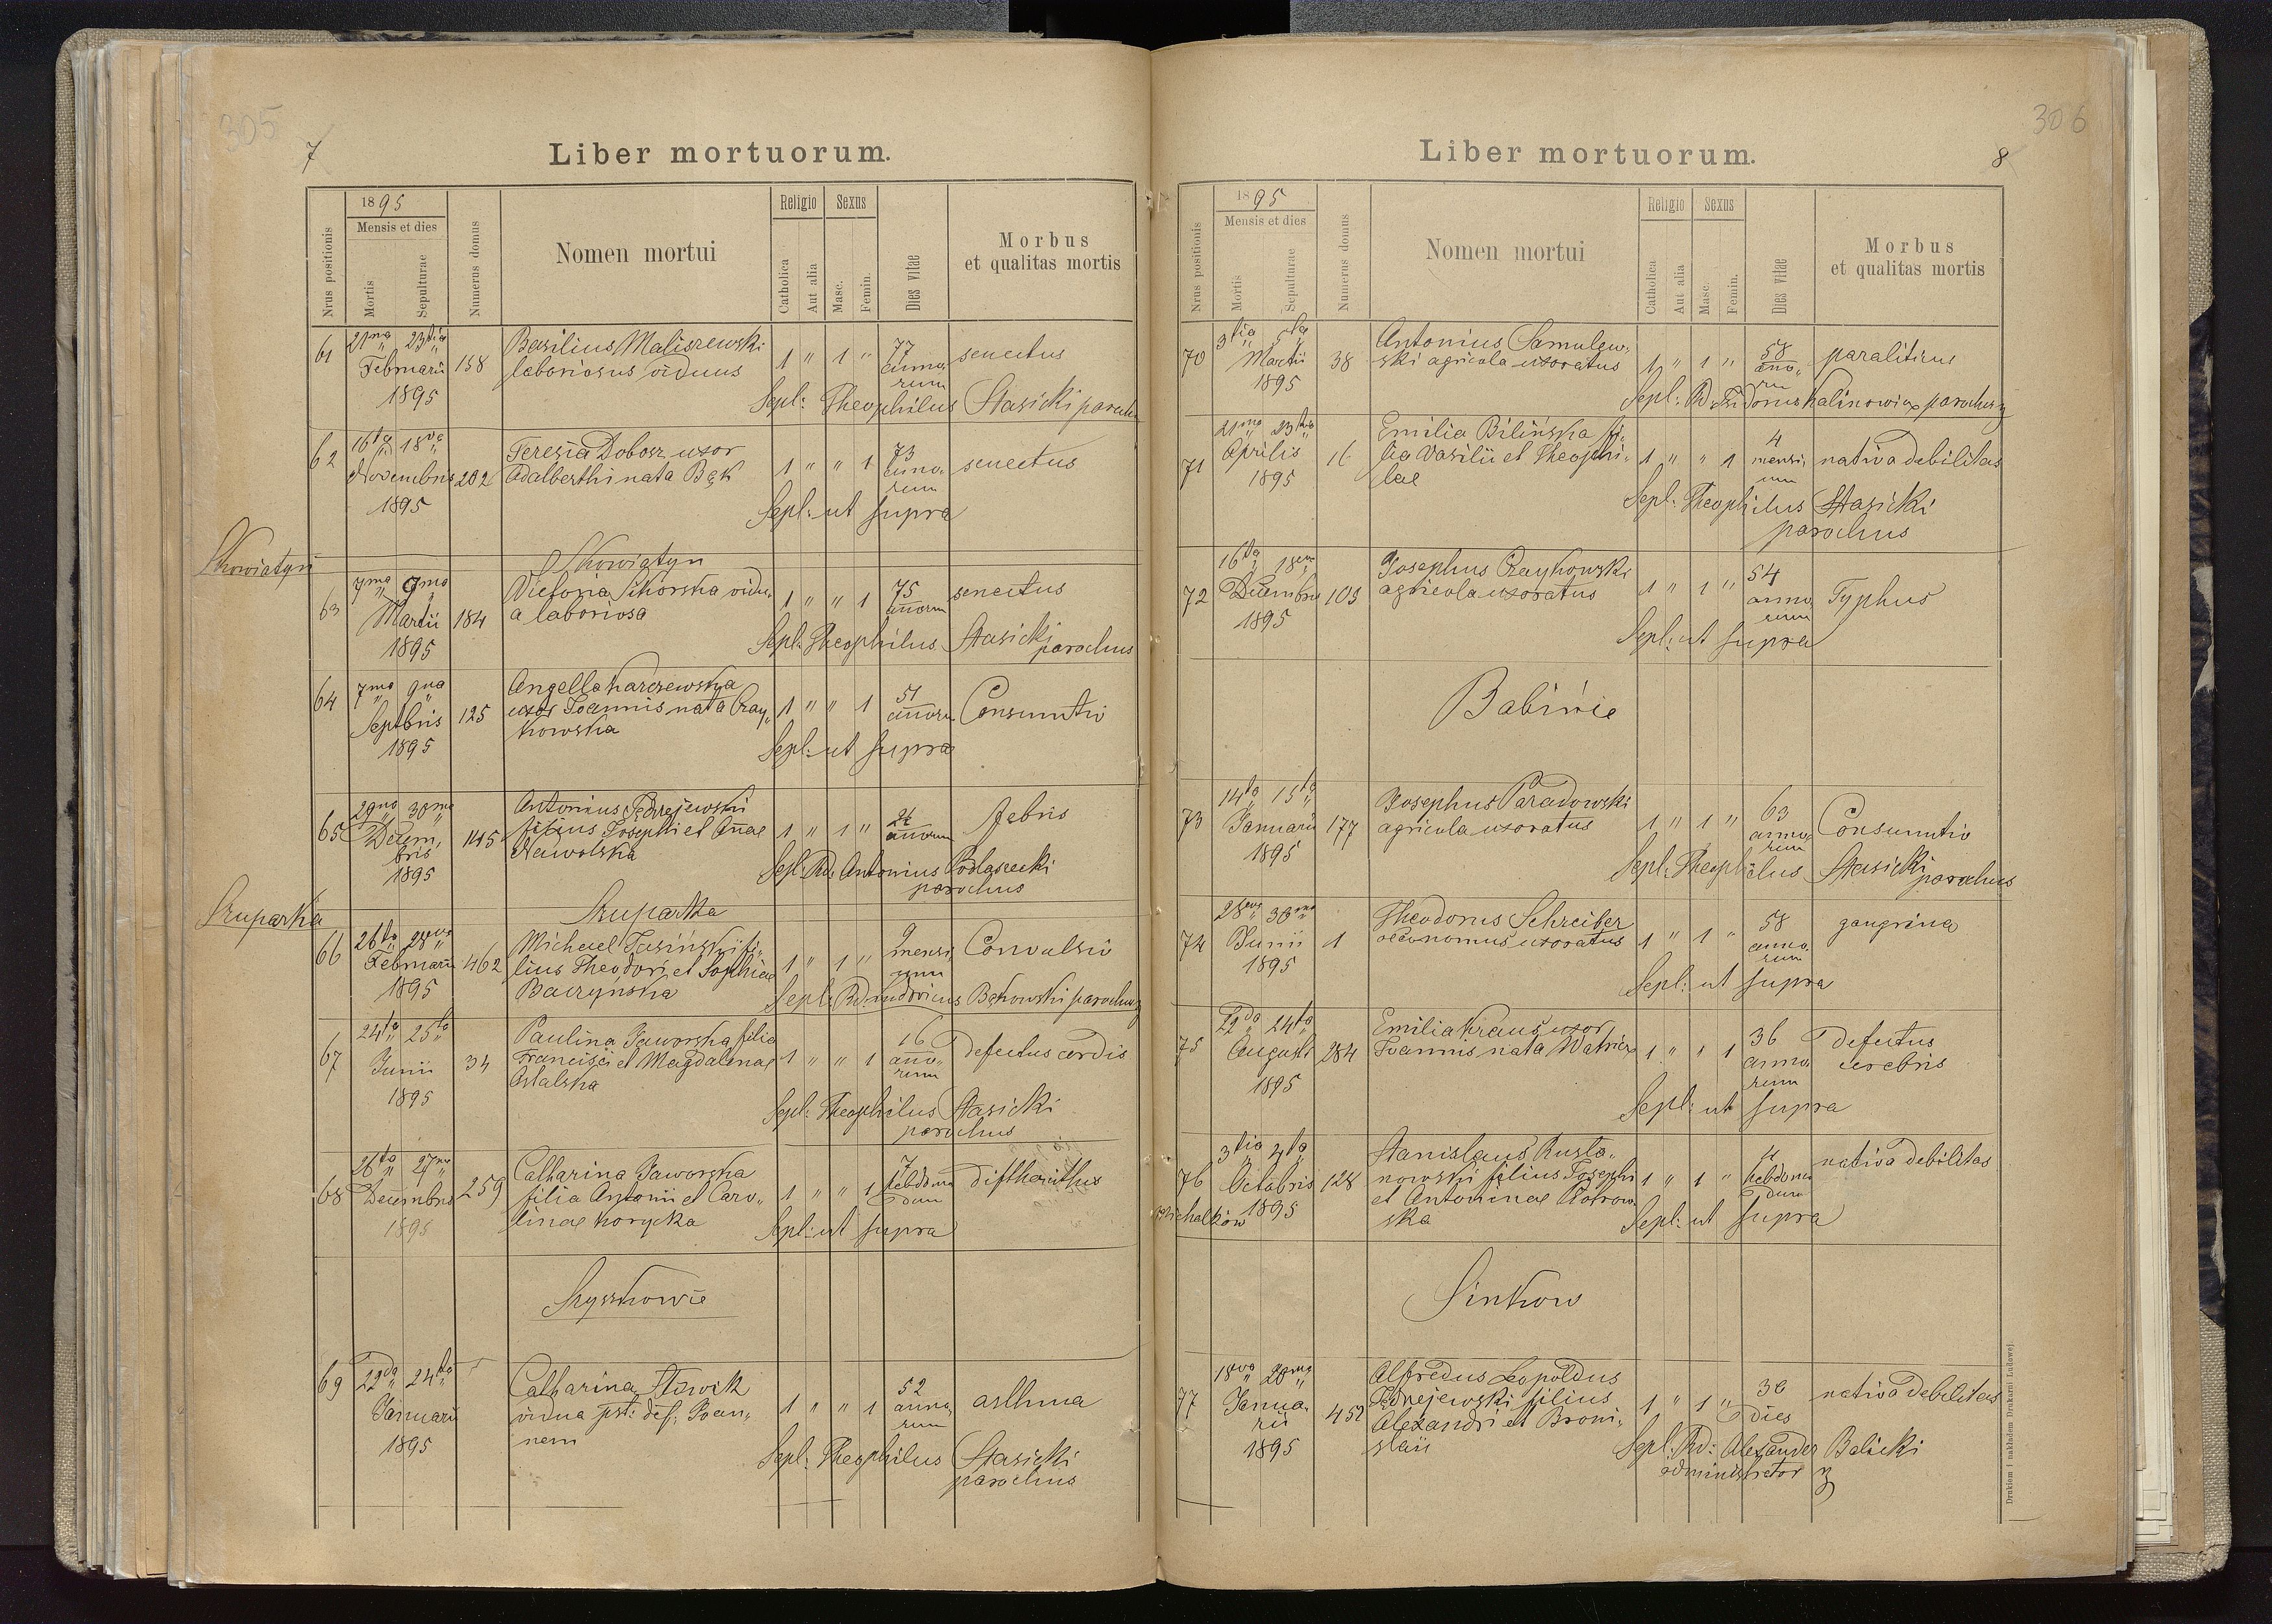 305
7
Liber mortuorum.
Nrus positionis
1895
Mensis et dies
Mortis
Sepulturae
Numerus domus
Nomen mortui
Religio
Catholica
Aut alia
Sexus
Masc.
Femin.
Dies vitae
Morbus
et qualitas mortis
61
21ma 23tia
Februarii
1895
158
Basilius Maliszewski
laboriosus viduus
1 " 1 "
77
anno
rum
senectus
Sepl: Theophilus Stasicki parochus
62
16ta 18va
Novembris
1895
202
Teresia Dobosz uxor
Adalberthi nata Bąk
1 " " 1
73
anno
rum
senectus
Sepl: ut supra
Skowiatyn
Skowiatyn
63
7ma 9ma
Martii
1895
184
Victoria Sikorska vidu,
a laboriosa
1 " " 1
75
annorum
senectus
Sepl: Theophilus Stasicki
parochus
64
7ma 9na
Septbris
1895
125
Angella Karczewska
uxor Joannis nata Czay,
kowska
1 " " 1
51
annoru
Consumtio
Sepl: ut supra
65
29na 30ma
Decem,
bris
1895
145
Antonius Jędrejewski
filius Josephi et Annae
Nawolska
1 " 1 "
2½
annorum
febris
Sepl: Rd. Antonius Podlasecki
parochus
Szuparka
Szuparka
66
26ta 28va
Februarii
1895
462
Michael Jasiński fi,
lius Theodori et Sophiae
Baczynska
1 " 1 "
9
mensi
um
Convulsio
Sepl: Rd. Ludovicus Bąkowski parochus
67
24ta 25ta
Junii
1895
34
Paulina Jaworska filia
Francisci et Magdalenae
Astalska
1 " " 1
16
anno,
rum
defectus cordis
Sepl: Theophilus Stasicki
parochus
68
26ta 27ma
Decembris
1895
259
Catharina Jaworska
filia Antonii et Caro,
linae Korycka
1 " " 1
7
hebdoma
dum
diftheritus
Sepl: ut supra
Szyszkowce
69
22da 24ta
Januarii
1895
Catharina Słowik
vidua pst: def: Joan,
nem
1 " " 1
52
anno,
rum
asthma
Sepl: Theophilus Stasicki
parochus
306
8
Liber mortuorum.
Nrus positionis
1895
Mensis et dies
Mortis
Sepulturae
Numerus domus
Nomen mortui
Religio
Catholica
Aut alia
Sexus
Masc.
Femin.
Dies vitae
Morbus
et qualitas mortis
70
3tia 5ta
Martii
1895
38
Antonius Samulew,
ski agricola uxoratus
1 " 1 "
58
anno,
ru
paraliticus
Sepl: Rd. Isidorus Kalinowicz parochus
71
21ma 23tia
Aprilis
1895
16
Emilia Bilińska fi,
lia Vasilii et Theophi,
lae
1 " " 1
4
mensi,
um
nativa debilitas
Sepl: Theophilus Stasicki
parochus
72
16ta 18va
Decembris
1895
103
Josephus Czaykowski
agricola uxoratus
1 " 1 "
54
anno,
rum
Typhus
Sepl: ut supra
Babińce
73
14ta 15ta
Januarii
1895
177
Josephus Paradowski
agricola uxoratus
1 " 1 "
63
anno,
rum
Consumtio
Sepl: Theophilus Stasicki
parochus
74
28va 30ma
Junii
1895
1
Theodorus Schreiber
oeconomus uxoratus
1 " 1 "
58
anno
rum
gangrina
Sepl: ut supra
75
22da 24ta
Augusti
1895
284
Emilia Kraus uxor
Joannis nata Watricz
1 " " 1
36
anno
rum
Defectus
cerebris
Sepl: ut supra
76
3tia 4ta
Octobris
1895
Michałków
128
Stanislaus Rusta,
nowski filius Josephi
et Antoninae Piotrow
ska
1 " 1 "
hebdoma
dum
nativa debilitas
Sepl: ut supra
Sinkow
77
18va 20ma
Janua,
rii
1895
452
Alfredus Leopoldus
Jędrejewski filius
Alexandri et Broni,
slaii
1 " 1 "
30
dies
nativa debilitas
Sepl: Rd: Alexander Balicki
administrator
Drukiem i nakładem Drukarni Ludowej